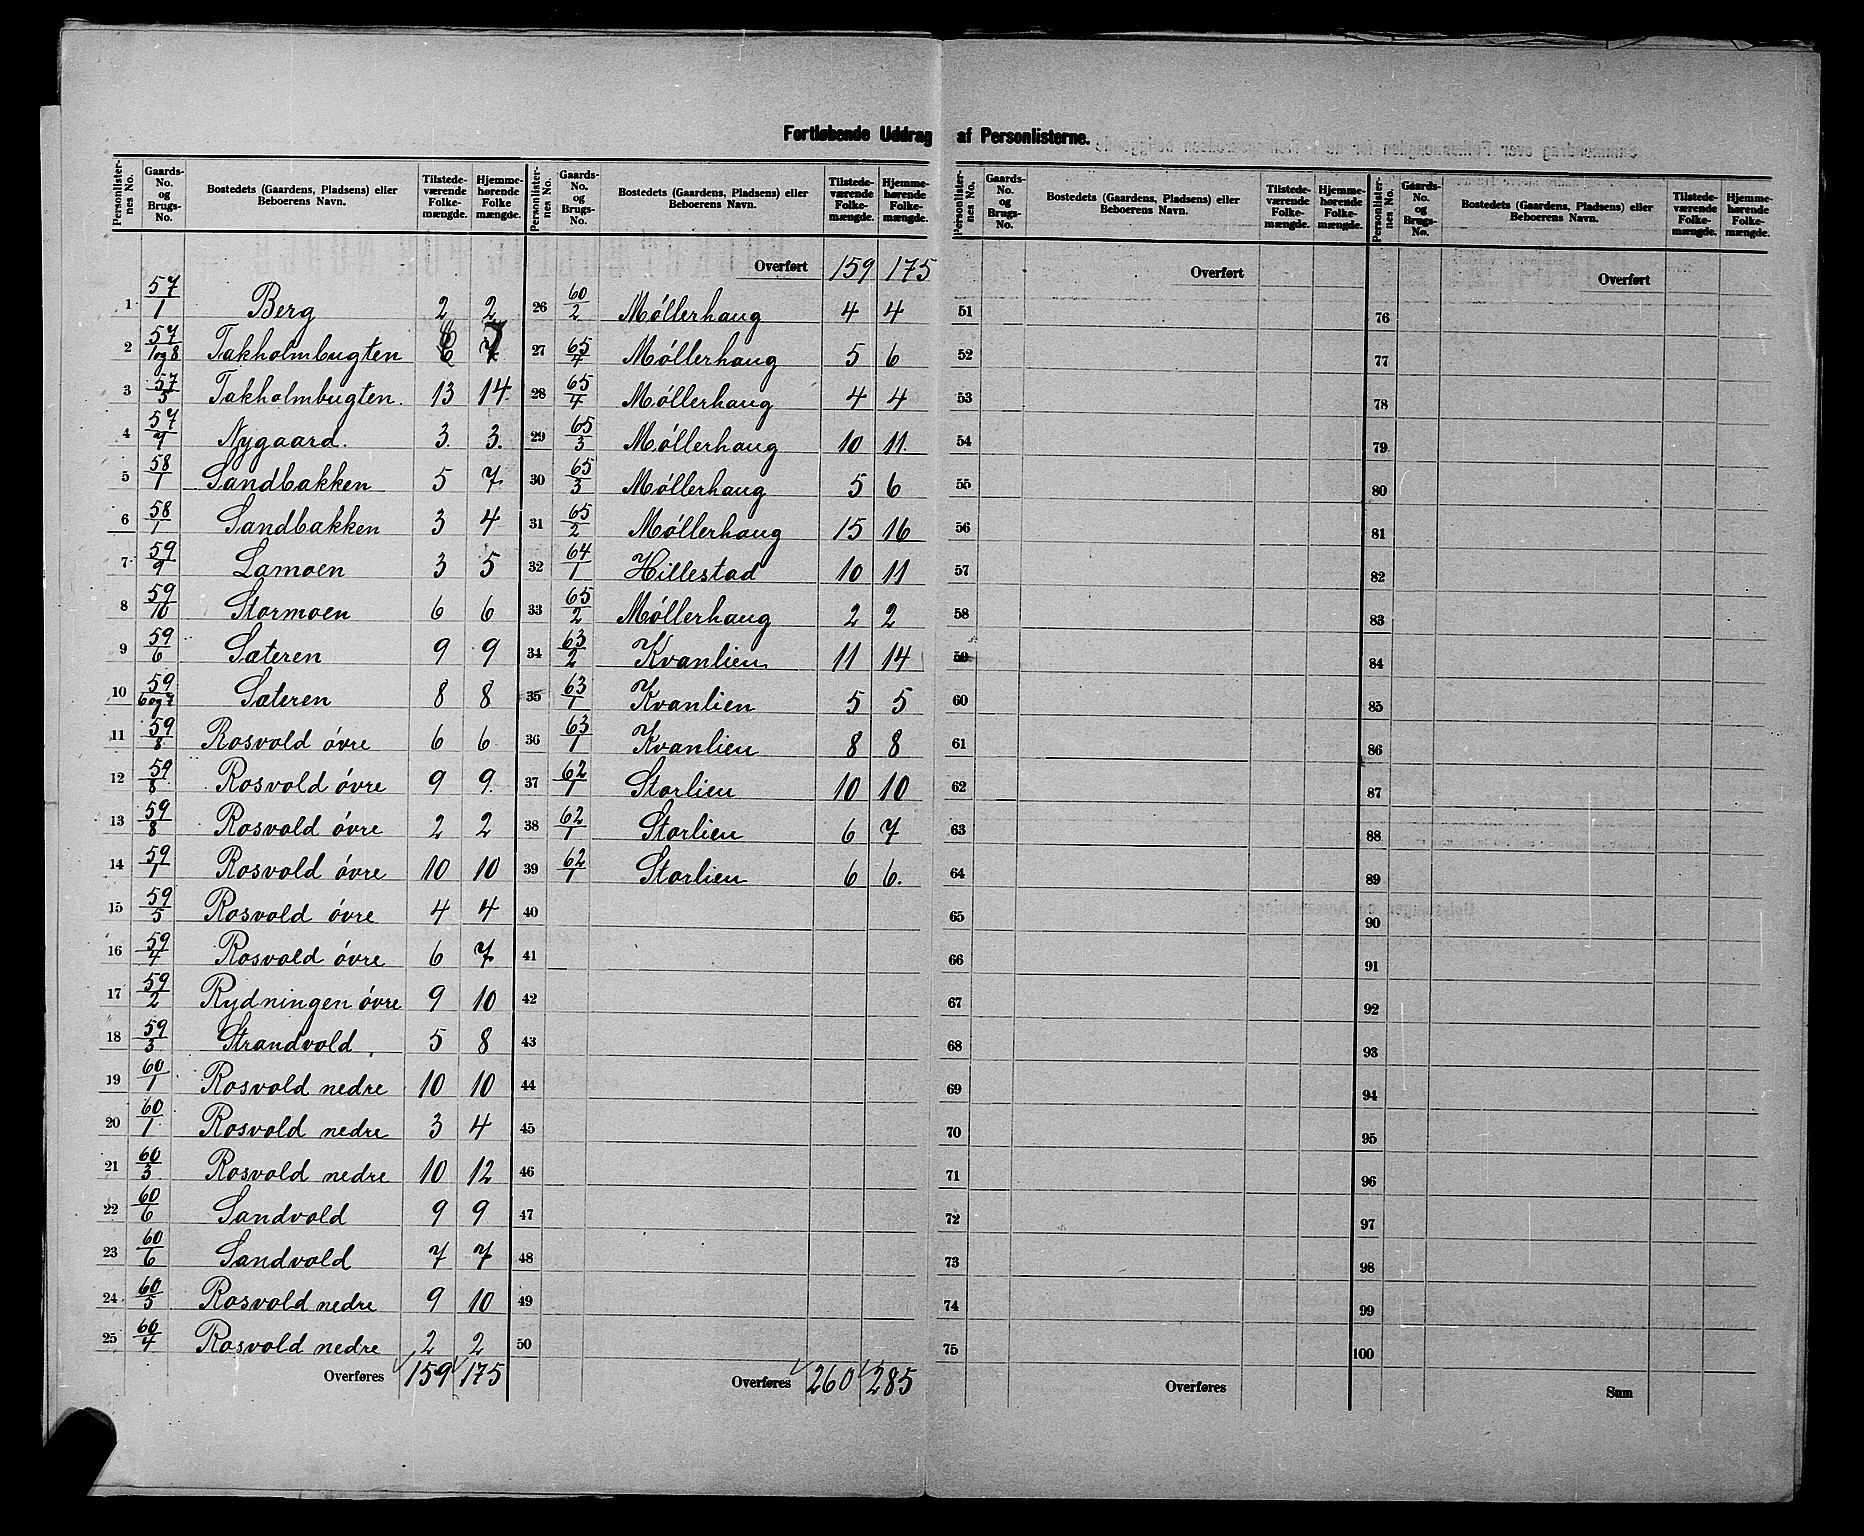 Fortløbende Uddrag af Personlisterne.
Personlister-nes No. | Gaards-No. og Brugs-No. | Bostedets (Gaardens, Pladsens) eller Beboerens Navn. | Tilstede-værende Folke-mængde. | Hjemme-hørende Folke mængde.
1 | 57/1 | Berg | 2 | 2
2 | 57/1 og 8 | Takholmbugten | 6 | 7
3 | 57/5 | Takholmbugten. | 13 | 14
4 | 57/7 | Nygaard. | 3. | 3.
5 | 58/1 | Sandbakken | 5 | 7
6 | 58/1 | Sandbakken | 3 | 4
7 | 59/9 | Lamoen | 3 | 5
8 | 59/10 | Stormoen | 6 | 6
9 | 59/6 | Sæteren | 9 | 9
10 | 59/6 og 7 | Sæteren | 8 | 8
11 | 59/8 | Rosvold óvre | 6 | 6
12 | 59/8 | Rosvold óvre | 9 | 9.
13 | 59/8 | Rosvold óvre | 2 | 2
14 | 59/1 | Rosvold óvre | 10 | 10
15 | 59/5 | Rosvold óvre | 4 | 4
16 | 59/4 | Rosvold óvre | 6 | 7
17 | 59/2 | Rydningen óvre | 9 | 10
18 | 59/3 | Strandvold. | 5 | 8
19 | 60/1 | Rosvold nedre | 10 | 10
20 | 60/1 | Rosvold nedre | 3 | 4
21 | 60/3 | Rosvold nedre | 10 | 12
22 | 60/6 | Sandvold | 9 | 9
23 | 60/6 | Sandvold | 7 | 7
24 | 60/5 | Rosvold nedre | 9 | 10
25 | 60/4 | Rosvold nedre | 2 | 2
Overføres | 159 | 175
Personlister-nes No. | Gaards-No. og Brugs-No. | Bostedets (Gaardens, Pladsens) eller Beboerens Navn. | Tilstede-værende Folke-mængde. | Hjemme-hørende Folke-mængde.
Overført | 159 | 175
26 | 60/2 | Móllerhaug | 4 | 4
27 | 65/4 | Móllerhaug | 5 | 6
28 | 65/4 | Móllerhaug | 4 | 4
29 | 65/3 | Móllerhaug | 10 | 11.
30 | 65/3 | Móllerhaug | 5 | 6
31 | 65/2 | Móllerhaug | 15 | 16
32 | 64/1 | Hillestad | 10 | 11
33 | 65/2 | Móllerhaug | 2 | 2
34 | 63/2 | Kvanlien | 11 | 14
35 | 63/1 | Kvanlien | 5 | 5
36 | 63/1 | Kvanlien | 8 | 8
37 | 62/1 | Storlien | 10 | 10
38 | 62/1 | Storlien | 6 | 7
39 | 62/1 | Storlien | 6 | 6.
40
41
42
43
44
45
46
47
48
49
50
Overføres | 260 | 285
Personlister-nes No. | Gaards-No. og Brugs-No. | Bostedets (Gaardens, Pladsens) eller Beboerens Navn. | Tilstede-værende Folke-mængde. | Hjemme-hørende Folke-mængde.
Overført
51
52
53
54
55
56
57
58
59
60
61
62
63
64
65
66
67
68
69
70
71
72
73
74
75
Overføres
Personlister-nes No. | Gaards-No. og Brugs-No. | Bostedets (Gaardens, Pladsens) eller Beboerens Navn. | Tilstede-værende Folke-mængde. | Hjemme-hørende Folke-mængde.
Overført
76
77
78
79
80
81
82
83
84
85
86
87
88
89
90
91
92
93
94
95
96
97
98
99
100
Sum